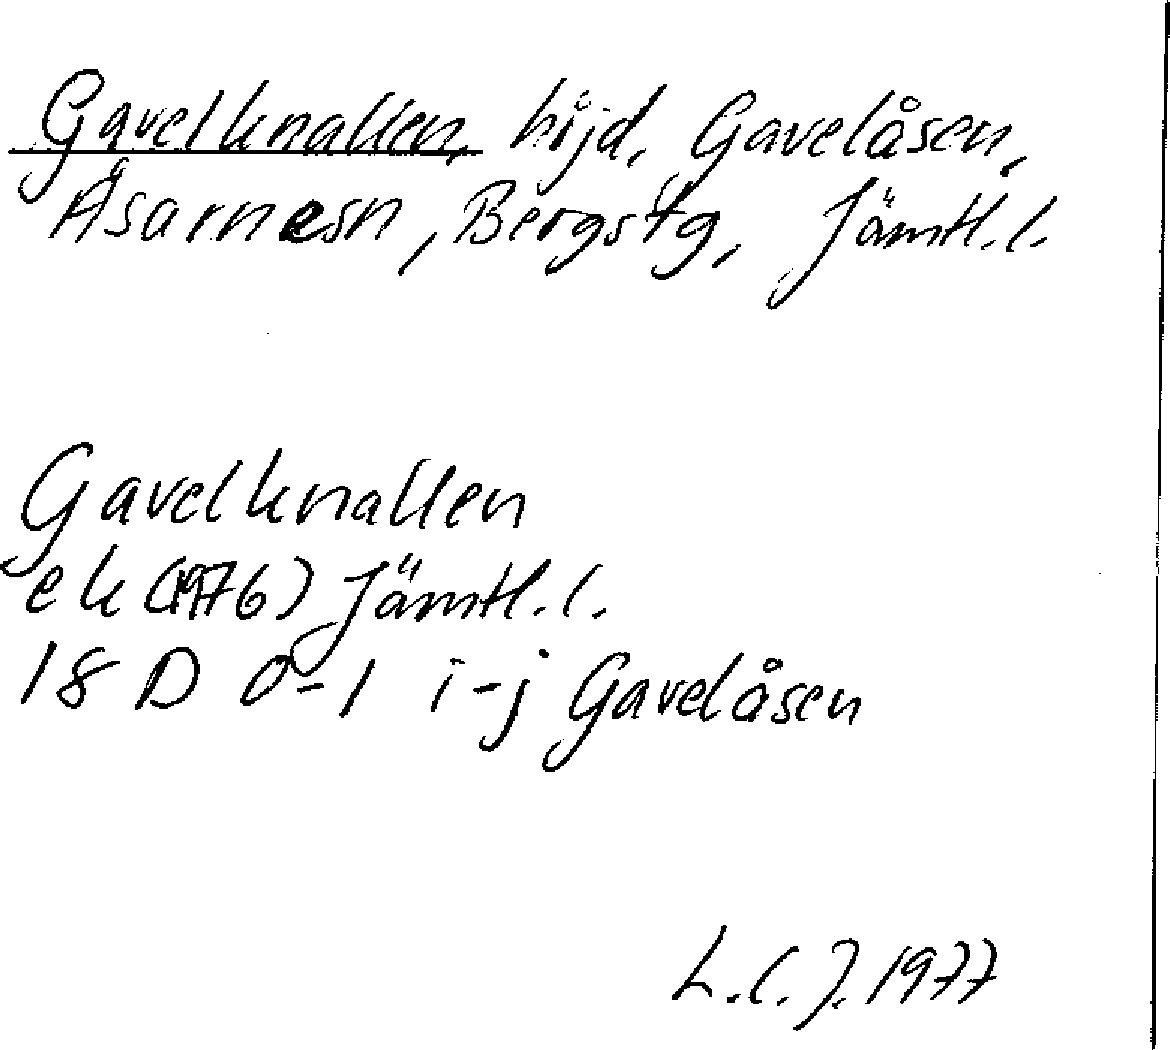 Gavelknallen, höjd, Gavelåsen,
Åsarnesn, Bergstg, Jämtl.l.
Gavelknallen
ek (1976) Jämtl.l.
18 D 0-1 i-j Gavelåsen
L.C.J. 1977